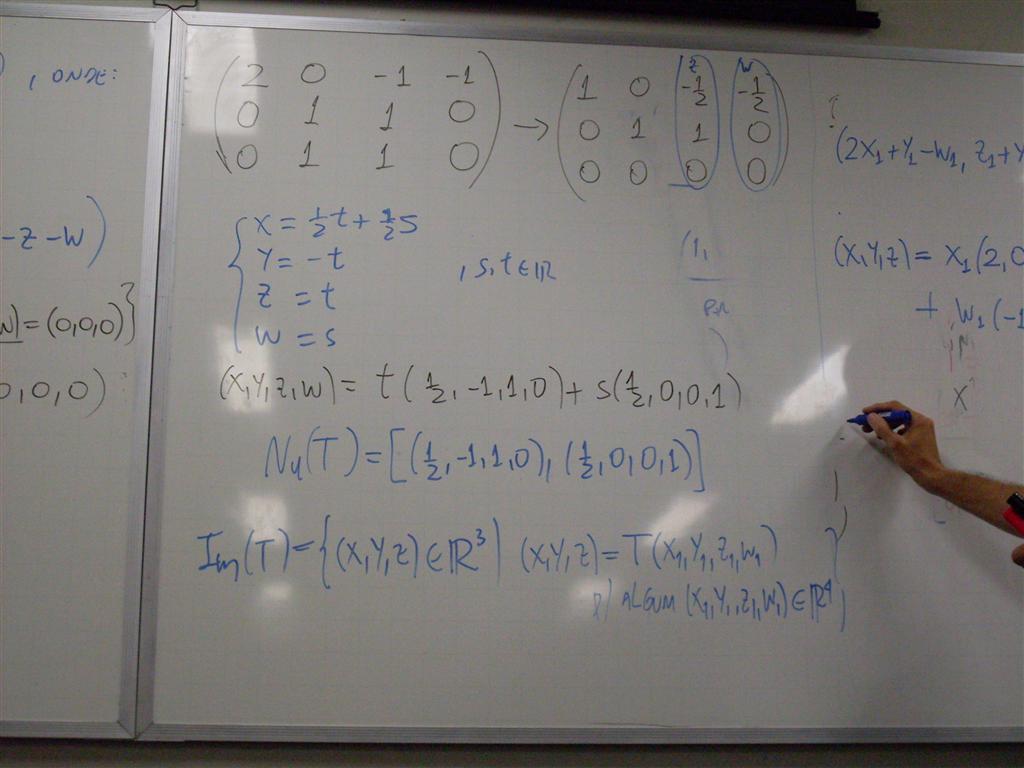 , ONDE:
-Z-W)
W)=(0,0,0)}
0,0,0)
(2 0 -1 -1
0 1 1 0
0 1 1 0) → (1 0 -1/2 -1/2
0 1 1 0
0 0 0 0)
z w
{X = 1/2t + 1/2s
Y = -t
Z = t
W = s
, s,t ∈ ℝ
(X,Y,Z,W) = t(1/2,-1,1,0) + s(1/2,0,0,1)
Nu(T) = [(1/2,-1,1,0), (1/2,0,0,1)]
Im(T) = {(X,Y,Z) ∈ ℝ³ | (X,Y,Z) = T(X₁,Y₁,Z₁,W₁)
p/ ALGUM (X₁,Y₁,Z₁,W₁) ∈ ℝ⁴}
(2X₁+Y₁-W₁, Z₁+Y
(X,Y,Z) = X₁(2,0
+ W₁(-1